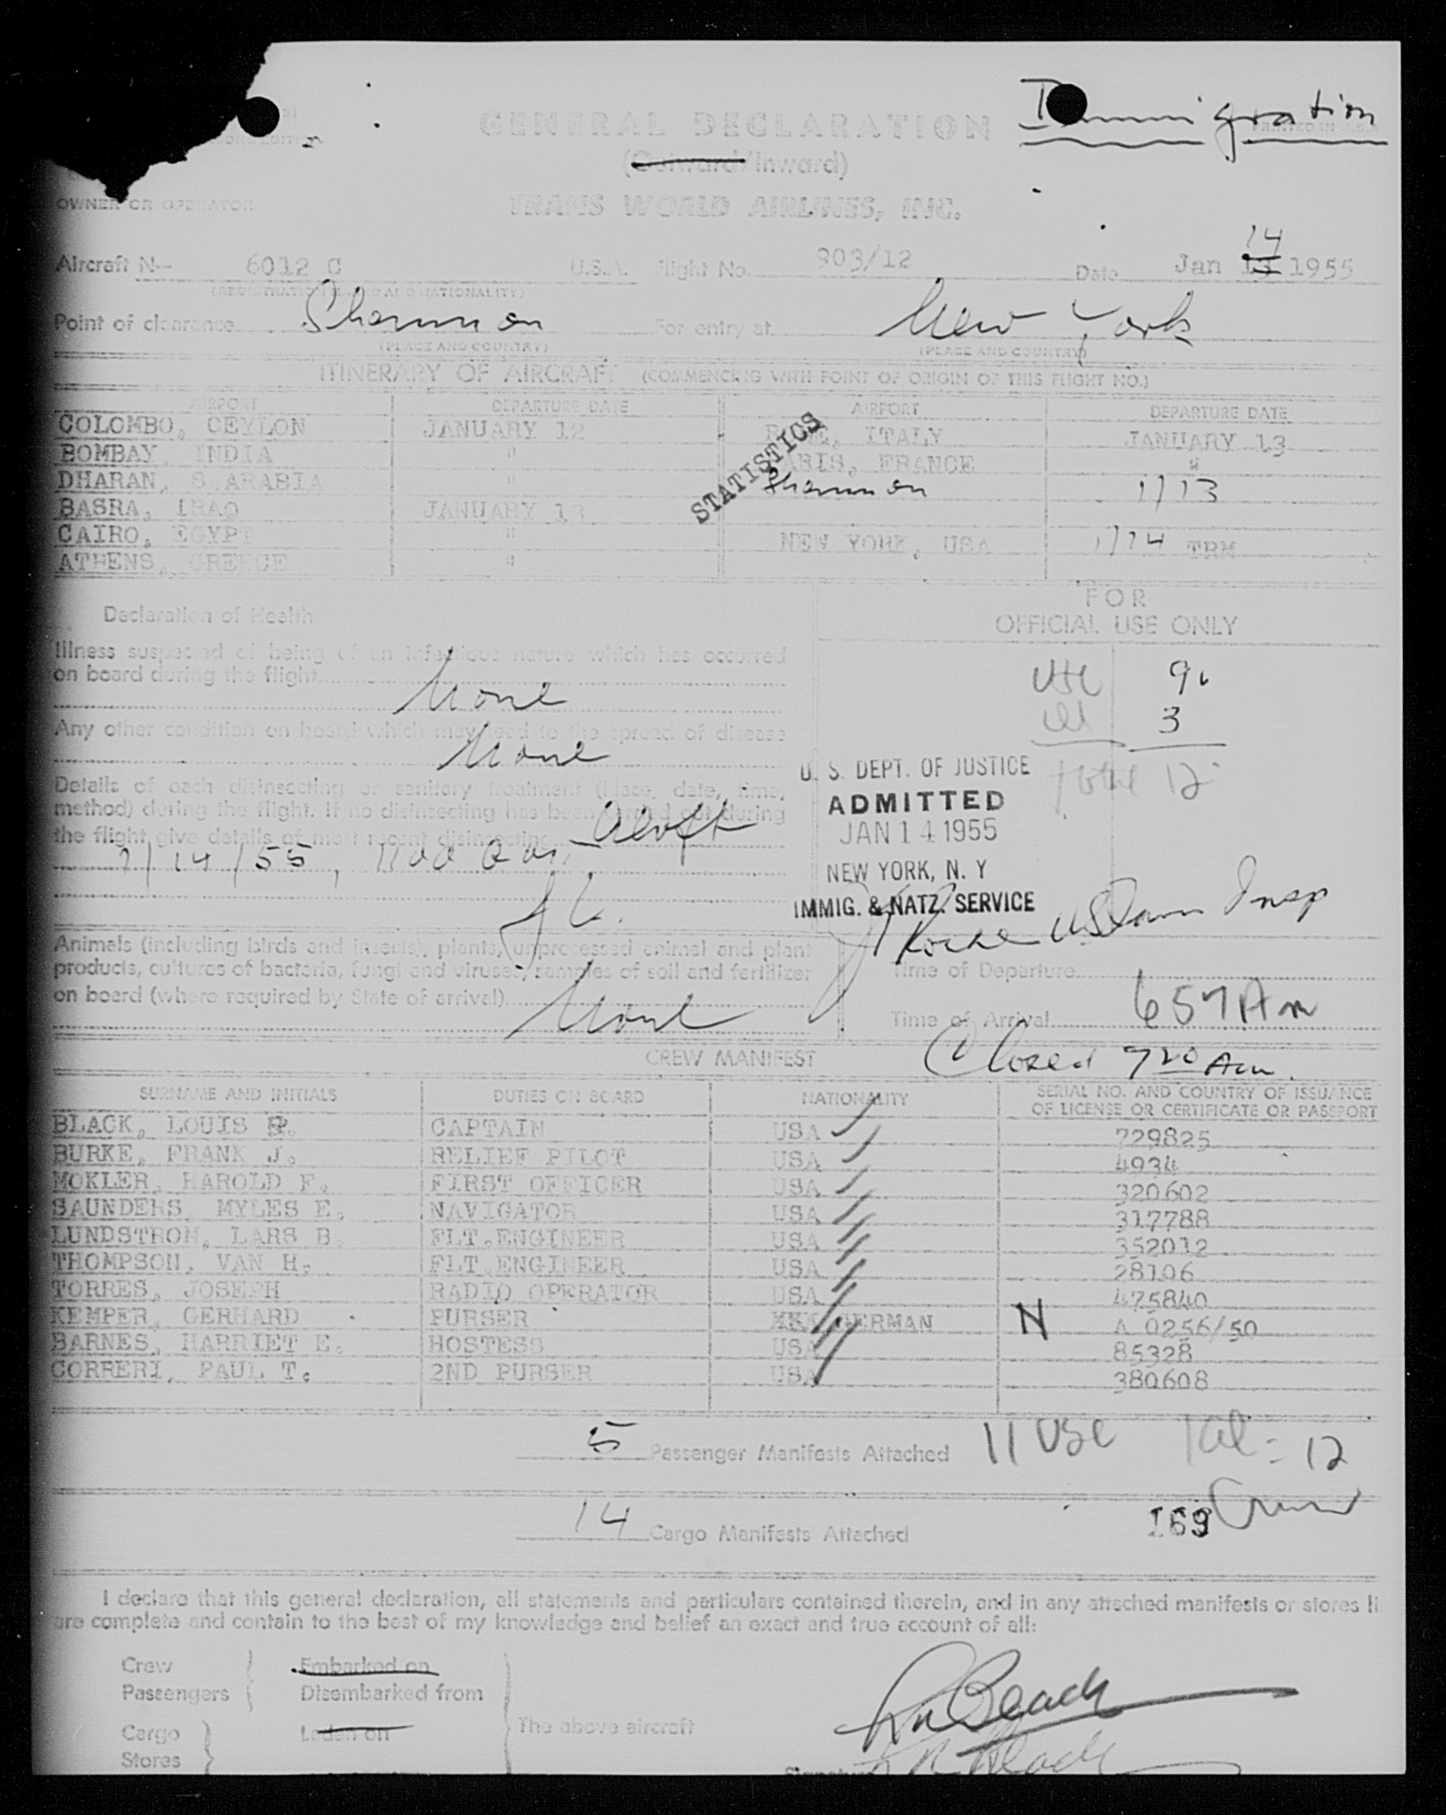 Immigration
GENERAL DECLARATION
PRINTED IN U.S.A.
(Outward/Inward)
OWNER OR OPERATOR
TRANS WORLD AIRLINES, INC.
14
Aircraft N— 6012 C U.S.A. Flight No. 903/12 Date Jan 13 1955
(REGISTRATION AND NATIONALITY)
Point of clearance Shannon For entry at New York
(PLACE AND COUNTRY) (PLACE AND COUNTRY)
ITINERARY OF AIRCRAFT (COMMENCING WITH POINT OF ORIGIN OF THIS FLIGHT NO.)
AIRPORT DEPARTURE DATE AIRPORT DEPARTURE DATE
COLOMBO, CEYLON JANUARY 12 ROME, ITALY JANUARY 13
BOMBAY, INDIA " PARIS, FRANCE "
DHARAN, S.ARABIA " Shannon 1/13
BASRA, IRAQ JANUARY 13
CAIRO, EGYPT " NEW YORK, USA 1/14 TRM
ATHENS, GREECE "
STATISTICS
Declaration of Health
FOR
OFFICIAL USE ONLY
Illness suspected of being of an infectious nature which has occurred
on board during the flight
None
Any other condition on board which may lead to the spread of disease
None
3
Total 12
Details of each disinsecting or sanitary treatment (Place, date, time,
method) during the flight. If no disinsecting has been carried out during
the flight give details of most recent disinsecting Aloft
1/14/55, 1100 A m,
U. S. DEPT. OF JUSTICE
ADMITTED
JAN 14 1955
NEW YORK, N. Y
IMMIG. & NATZ. SERVICE
Insp
Animals (including birds and insects), plants, unprocessed animal and plant
products, cultures of bacteria, fungi and viruses, samples of soil and fertilizer
on board (where required by State of arrival)
None
Time of Departure
Time of Arrival 657 Am
Closed 720 Am.
CREW MANIFEST
SURNAME AND INITIALS DUTIES ON BOARD NATIONALITY SERIAL NO. AND COUNTRY OF ISSUANCE
OF LICENSE OR CERTIFICATE OR PASSPORT
BLACK, LOUIS R. CAPTAIN USA 729825
BURKE, FRANK J. RELIEF PILOT USA 4934
MOKLER, HAROLD F. FIRST OFFICER USA 320602
SAUNDERS, MYLES E. NAVIGATOR USA 317788
LUNDSTROM, LARS B. FLT.ENGINEER USA 352012
THOMPSON, VAN H. FLT.ENGINEER USA 28106
TORRES, JOSEPH RADIO OPERATOR USA 475840
KEMPER, GERHARD PURSER GERMAN N A 0256/50
BARNES, HARRIET E. HOSTESS USA 85328
CORRERI, PAUL T. 2ND PURSER USA 380608
5 Passenger Manifests Attached 11 USC Total = 12
Crew
14 Cargo Manifests Attached 169
I declare that this general declaration, all statements and particulars contained therein, and in any attached manifests or stores li
are complete and contain to the best of my knowledge and belief an exact and true account of all:
Crew Embarked on
Passengers Disembarked from
Cargo Laden on The above aircraft
Stores
Signature